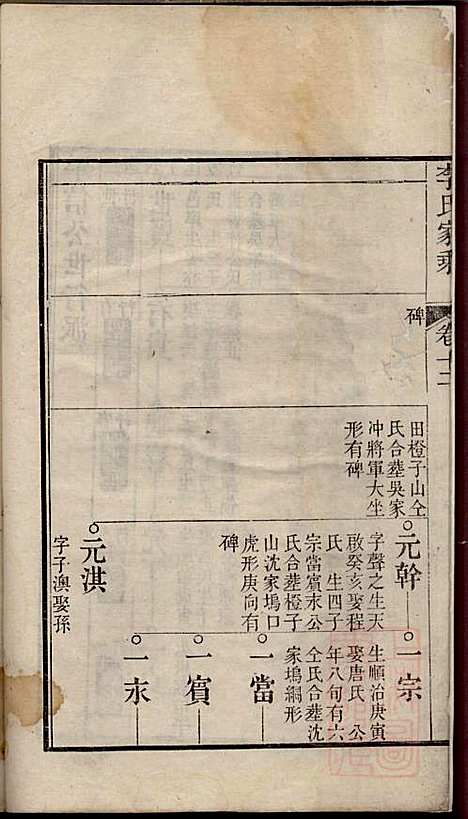 李氏家乘
卷十二
碑
田橙子山仝
氏合葬吳家
冲將軍大坐
形有碑
元幹
字聲之生天
啟癸亥娶程
氏 生四子
宗當賓永公
氏合葬橙子
山沈家塢口
虎形庚向有
碑
一宗
生順治庚寅
娶唐氏 公
年八旬有六
仝氏合葬沈
家塢綱形
一當
一賓
一永
元淇
字子澳娶孫